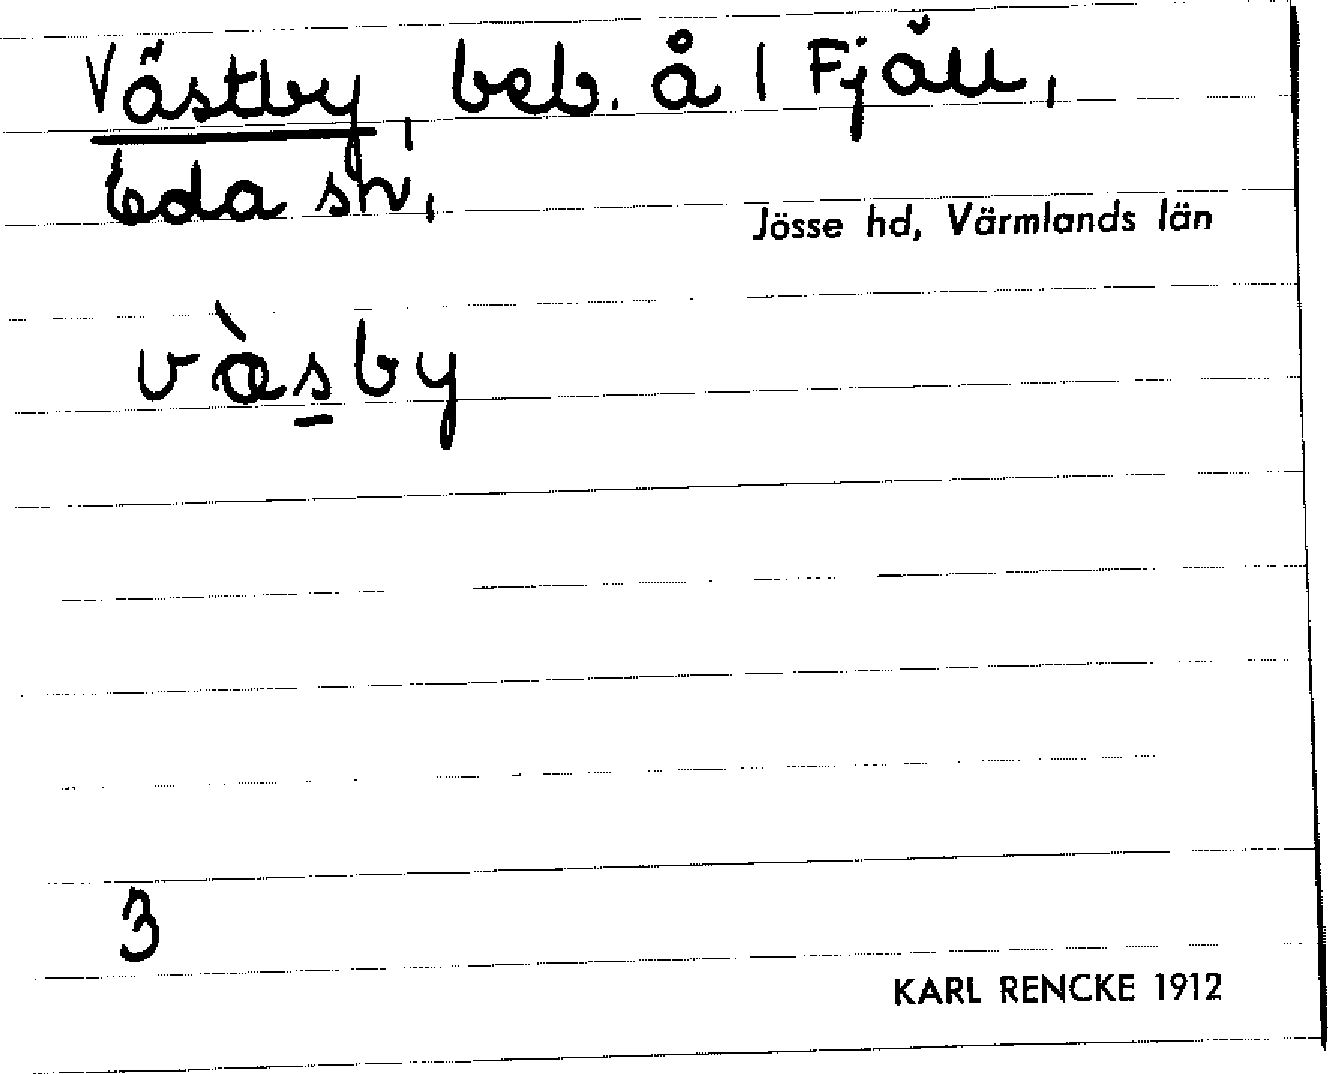 Västby, beb. å 1 Fjäll,
Eda sn,
Jösse hd, Värmlands län
vàsby
3
KARL RENCKE 1912